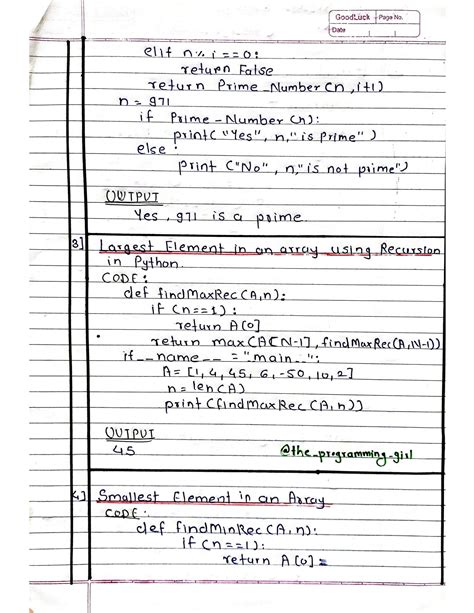 GoodLuck Page No.
Date
elif n % i == 0:
return False
return Prime_Number(n, i+1)
n = 971
if Prime-Number(n):
print("Yes", n, "is Prime")
else:
print ("No", n, "is not prime")
OUTPUT
Yes, 971 is a prime.
3] Largest Element in an array using Recursion
in Python.
CODE:
def findMaxRec(A,n):
if (n==1):
return A[0]
return max(A[N-1], findMaxRec(A,N-1))
if __name__ = "main__":
A = [1, 4, 45, 6, -50, 10, 2]
n = len(A)
print(findMaxRec(A,n))
OUTPUT
45
@the_programming_girl
4] Smallest Element in an Array
CODE:
def findMinRec(A,n):
if (n==1):
return A[0] =